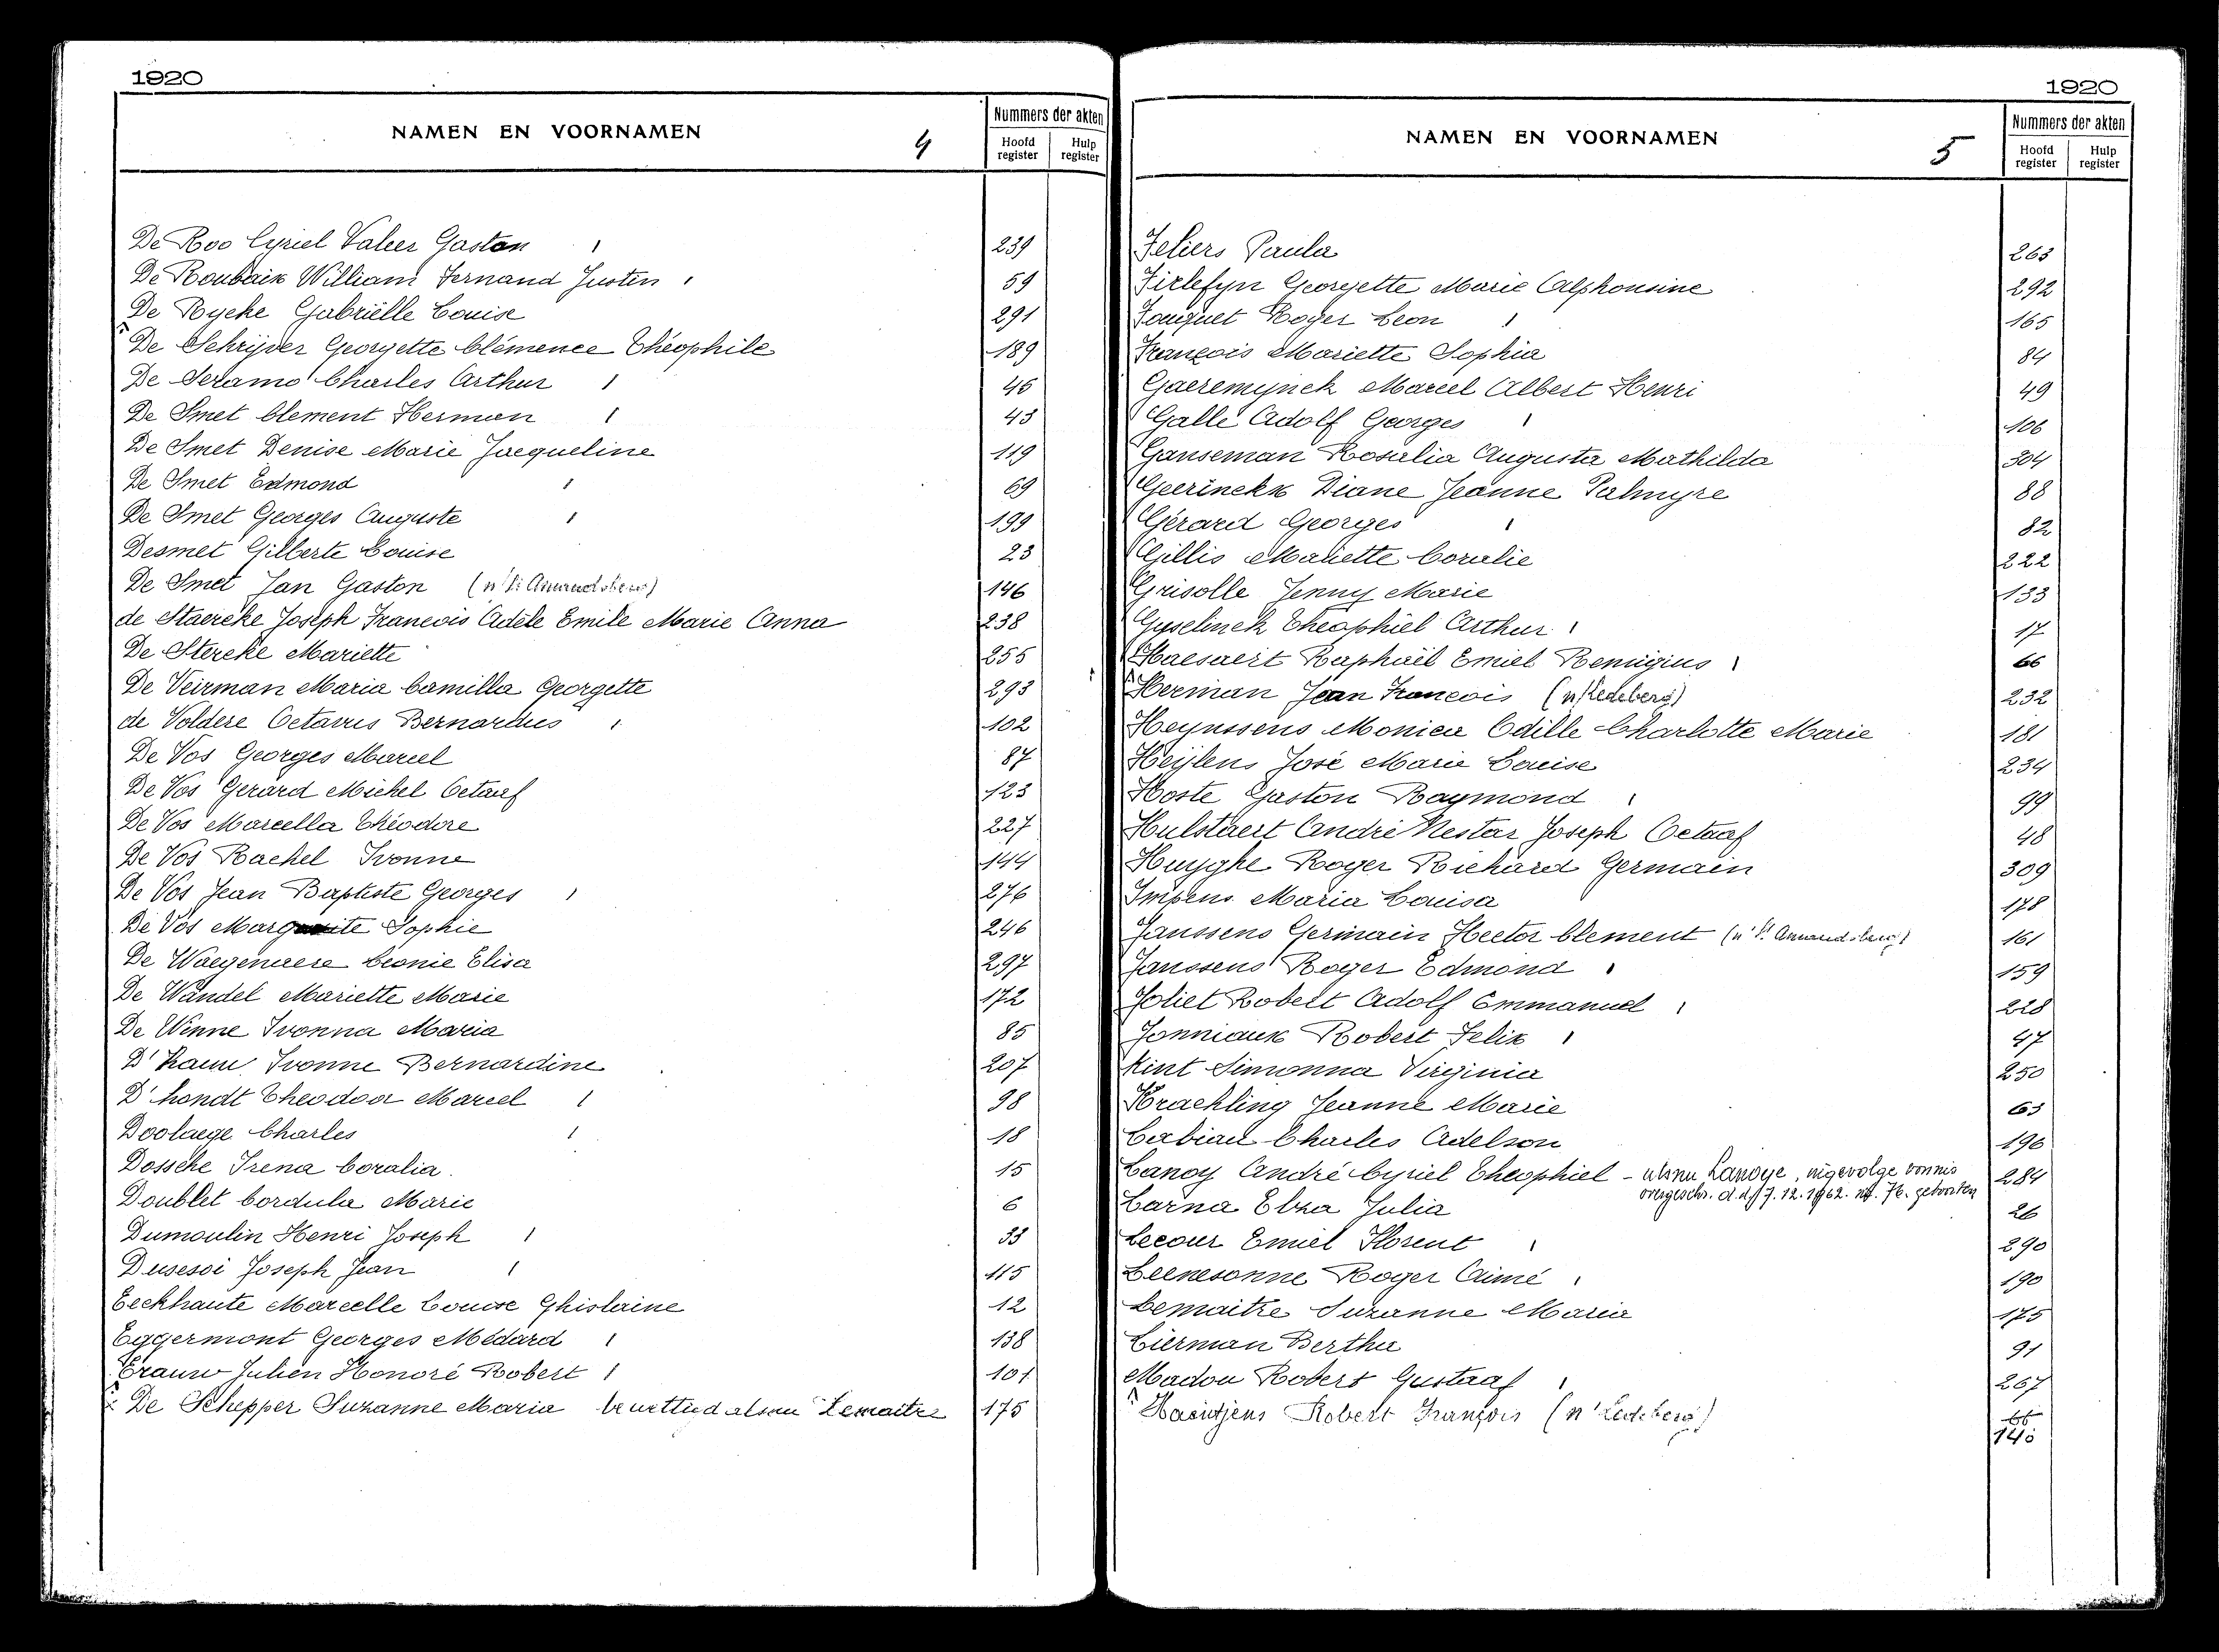 1920
NAMEN EN VOORNAMEN
4
Nummers der akten
Hoofd register
Hulp register
De Roo Cyriel Valeer Gaston 239
De Roubaix William Fernand Justin 59
De Rycke Gabriëlle Louise 291
De Schrijver Georgette Clémence Théophile 189
De Seramo Charles Arthur 46
De Smet Clement Herman 43
De Smet Denise Marie Jacqueline 119
De Smet Edmond 69
De Smet Georges Auguste 199
Desmet Gilberte Louise 23
De Smet Jan Gaston (n' St Amandsberg) 146
de Staercke Joseph Francois Adèle Emile Marie Anna 238
De Stercke Mariette 255
De Veirman Maria Camilla Georgette 293
de Voldere Octavus Bernardus 102
De Vos Georges Marcel 87
De Vos Gerard Michel Octaaf 123
De Vos Marcella Théodore 227
De Vos Rachel Ivonne 144
De Vos Jean Baptiste Georges 276
De Vos Marguerite Sophie 246
De Waegenaere Leonie Elisa 297
De Wandel Mariette Marie 172
De Winne Ivonna Maria 85
D' Ivonne Bernardine 207
D'hondt Theodoor Marcel 98
Doolaege Charles 18
Dossche Irena Coralia 15
Doublet Cordula Marie 6
Dumoulin Henri Joseph 33
Dusesoi Joseph Jean 115
Eeckhaute Marcelle Louise Ghislaine 12
Eggermont Georges Médard 138
Erauw Julien Honoré Robert 101
De Schepper Suzanne Maria bewettigd alsnu Lemaitre 175
1920
NAMEN EN VOORNAMEN
5
Nummers der akten
Hoofd register
Hulp register
Feliers Paula 263
Firlefyn Georgette Marie Alphonsine 292
Fouquet Roger Leon 165
François Mariette Sophia 84
Gaeremynck Marcel Albert Henri 49
Galle Adolf Georges 106
Ganseman Rosalia Augusta Mathilda 304
Geerinckx Diane Jeanne Palmyre 88
Gérard Georges 82
Gillis Mariette Coralie 222
Grisolle Jenny Marie 133
Gyselinck Theophiel Arthur 17
Haesaert Raphaël Emiel Remigius 66
Herman Jean Francois (n/Ledeberg) 232
Heynssens Monica Odille Charlotte Marie 181
Heijlens José Marie Louise 234
Hoste Gaston Raymond 99
Hulstaert André Nestor Joseph Octaaf 48
Huyghe Roger Richard Germain 309
Impens Maria Louisa 178
Janssens Germain Hector Clement (n' St Amandsberg) 161
Janssens Roger Edmond 159
Joliet Robert Adolf Emmanuel 228
Jonniaux Robert Felix 47
Kint Simonna Virginia 250
Kraehling Jeanne Marie 63
Labiau Charles Adelson 196
Lanoy André Cyriel Theophiel - alsnu Lanoye, ingevolge vonnis 284
overgeschr. d.d. 7.12.1962. nr. 76. geboorten
Larna Elza Julia 26
Lecour Emiel Florent 290
Leenesonne Roger Aimé 190
Lemaitre Suzanne Maria 175
Lierman Bertha 91
Madou Robert Gustaaf 267
Haentjens Robert François (n' Ledeberg) 66
140